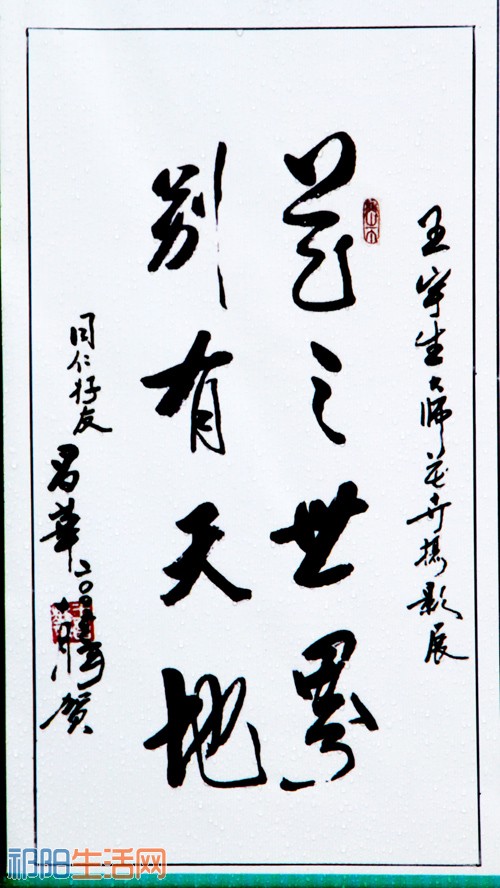 王宇生大师花卉摄影展
花之世界
别有天地
同仁好友
君華二〇〇
賀
祁阳生活网